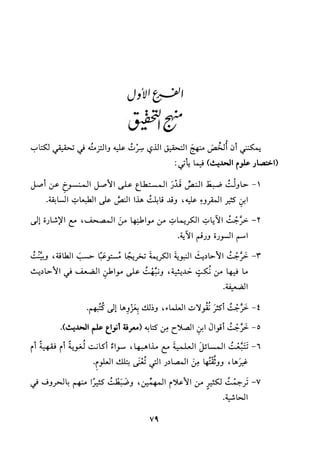 الفرع الأول
منهج التحقيق
يمكنني أن أُلخِّصَ منهجَ التحقيق الذي سِرْتُ عليه والتزمتُه في تحقيقي لكتاب
(اختصار علوم الحديث) فيما يأتي:
١- حاولْتُ ضبطَ النصِّ قَدْرَ المستطاع على الأصل المنسوخِ عن أصل
ابنِ كثير المقروءِ عليه، وقد قابلتُ هذا النصَّ على الطبعاتِ السابقة.
٢- خرَّجْتُ الآياتِ الكريماتِ من مواطنِها منَ المصحف، مع الإشارة إلى
اسم السورة ورقم الآية.
٣- خَرَّجْتُ الأحاديثَ النبويةَ الكريمةَ تخريجًا مُستوعبًا حسبَ الطاقة، وبيَّنْتُ
ما فيها من نُكتٍ حَديثية، ونبَّهْتُ على مواطنِ الضعف في الأحاديث
الضعيفة.
٤- خَرَّجْتُ أكثرَ نُقولاتِ العلماء، وذلك بِعَزْوِها إلى كُتُبهم.
٥- خَرَّجْتُ أقوالَ ابنِ الصلاح مِن كتابه (معرفة أنواع علم الحديث).
٦- تَتَبَّعْتُ المسائلَ العلميةَ مع مذاهبها، سواءً أكانت لُغويةً أم فقهيةً أم
غيرَها، ووثَّقْتُها مِنَ المصادر التي تُعْنَى بتلك العلومِ.
٧- تَرجمْتُ لكثيرٍ من الأعلام المهمِّين، وضَبَطْتُ كثيرًا منهم بالحروف في
الحاشية.
٧٩